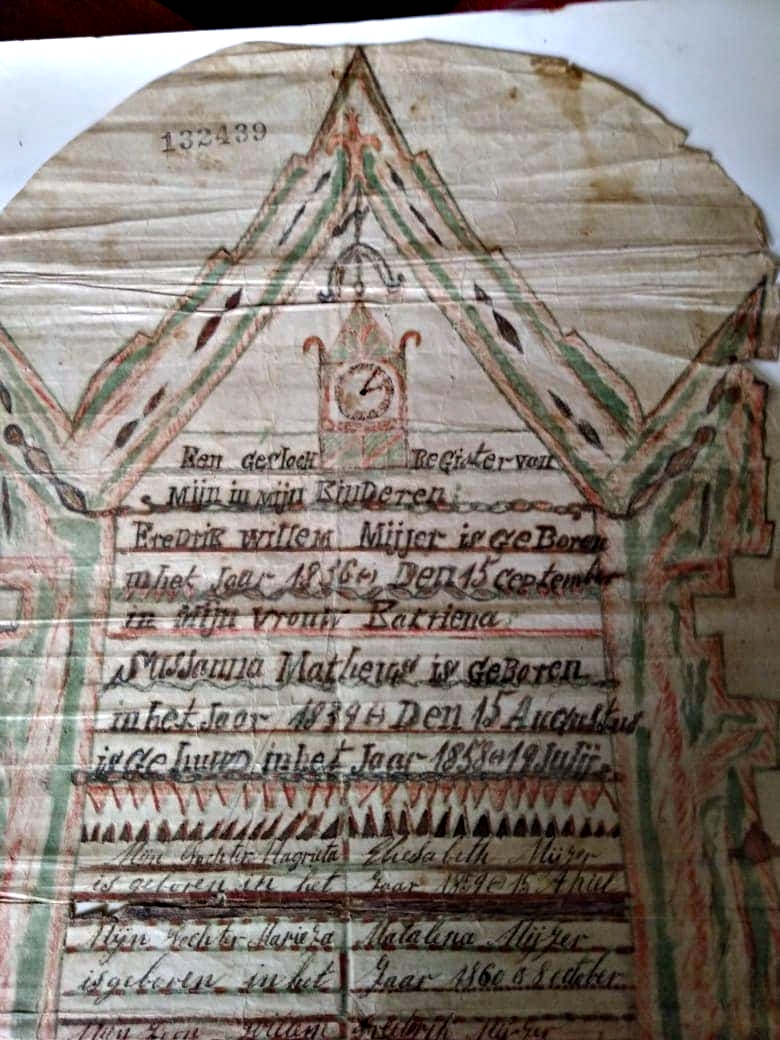 132439
Een gesloch Register van
Mijn in Mijn Kinderen
Fredrik Willem Mijjer is geBoren
in het Jaar 1836 Den 15 September
in Mijn vrouw Katriena
Sussanna Matheius is GeBoren
in het Jaar 1839 Den 15 Augustus
is getruwd in het Jaar 1858 19 Julij
Mijn Dochter Magrita Eliesabeth Mijzer
is geboren in het Jaar 1859 15 April
Mijn Dochter Marieza Matalena Mijzer
is geboren in het Jaar 1860 8 October
Mijn Zoon Willem Fredrik Mijzer